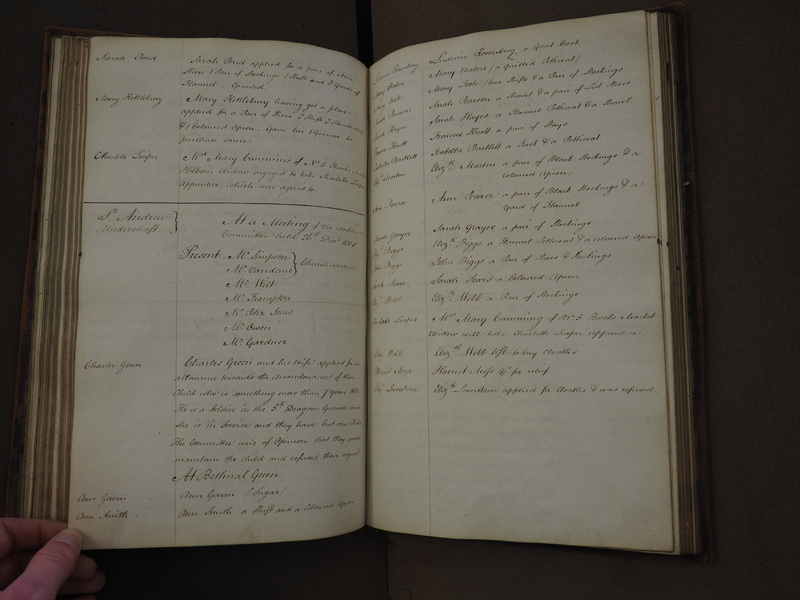 Sarah Pond
Sarah Pond applied for a pair of
Shoes 1 Pair of Stockings 1 Shift and 3 Yards of
Flannel. Granted.
Mary Kettlebury
Mary Kettlebury having got a place
applied for a Pair of Shoes 2 Shifts 2
& 1 Coloured Apron. Gave her 1 Guinea to
purchase same.
Charlotte Leaper
Mrs Mary Cumming of No 5 Brooks Market
Holborn Widow agreed to take Charlotte Leaper
Apprentice, which was agreed to.
St Andrew
Undershaft
At a Meeting of the
Committee held 26th Decr
Present Mr Simpson
Mr Vandome
Churchwardens
Mr Wilt
Mr Frampton
Mr Peter
Mr Owen
Mr Gardner
Charles Green
Charles Green and his Wife applied for an
allowance towards the maintenance of their
Child who is something more than 7 Years Old
He is a Soldier in the 5th Dragoon Guards and
she is in Service and they have but one Child
The Committee were of Opinion that they could
maintain the Child and refused their request
At Bethnal Green
Ann Gavin
Ann Gavin (Sugar)
Ann Smith
Ann Smith a Shift and a Coloured Apron
Ludwin Rosenburg a Great Coat
Mary Waters (a Quilted Petticoat)
Mary two Shifts & a Pair of Stockings
Sarah Parson a Shawl & a pair of List Shoes
Sarah Hayes a Flannel Petticoat & a Shawl
Frances Knott a pair of Stays
Isabella Bartlett a Frock & a Petticoat
Elizth Martin a pair of Black Stockings & a
Coloured Apron
Ann Pearce
Ann Pearce a pair of Black Stockings & a
Yard of Flannel
Sarah Grayer a pair of Stockings
Elizth Biggs a Flannel Petticoat & a coloured Apron
John Biggs a Pair of Shoes & Stockings
Sarah a Coloured Apron
Elizth Webb a Pair of Stockings
Charlotte Leaper
Mrs Mary Cumming of No 5 Brooks Market
Widow will take Charlotte Leaper Apprentice
Elizth Webb
Elizth Webb to buy Cloaths
Harriet for relief
Elizth applied for Cloaths & was refused